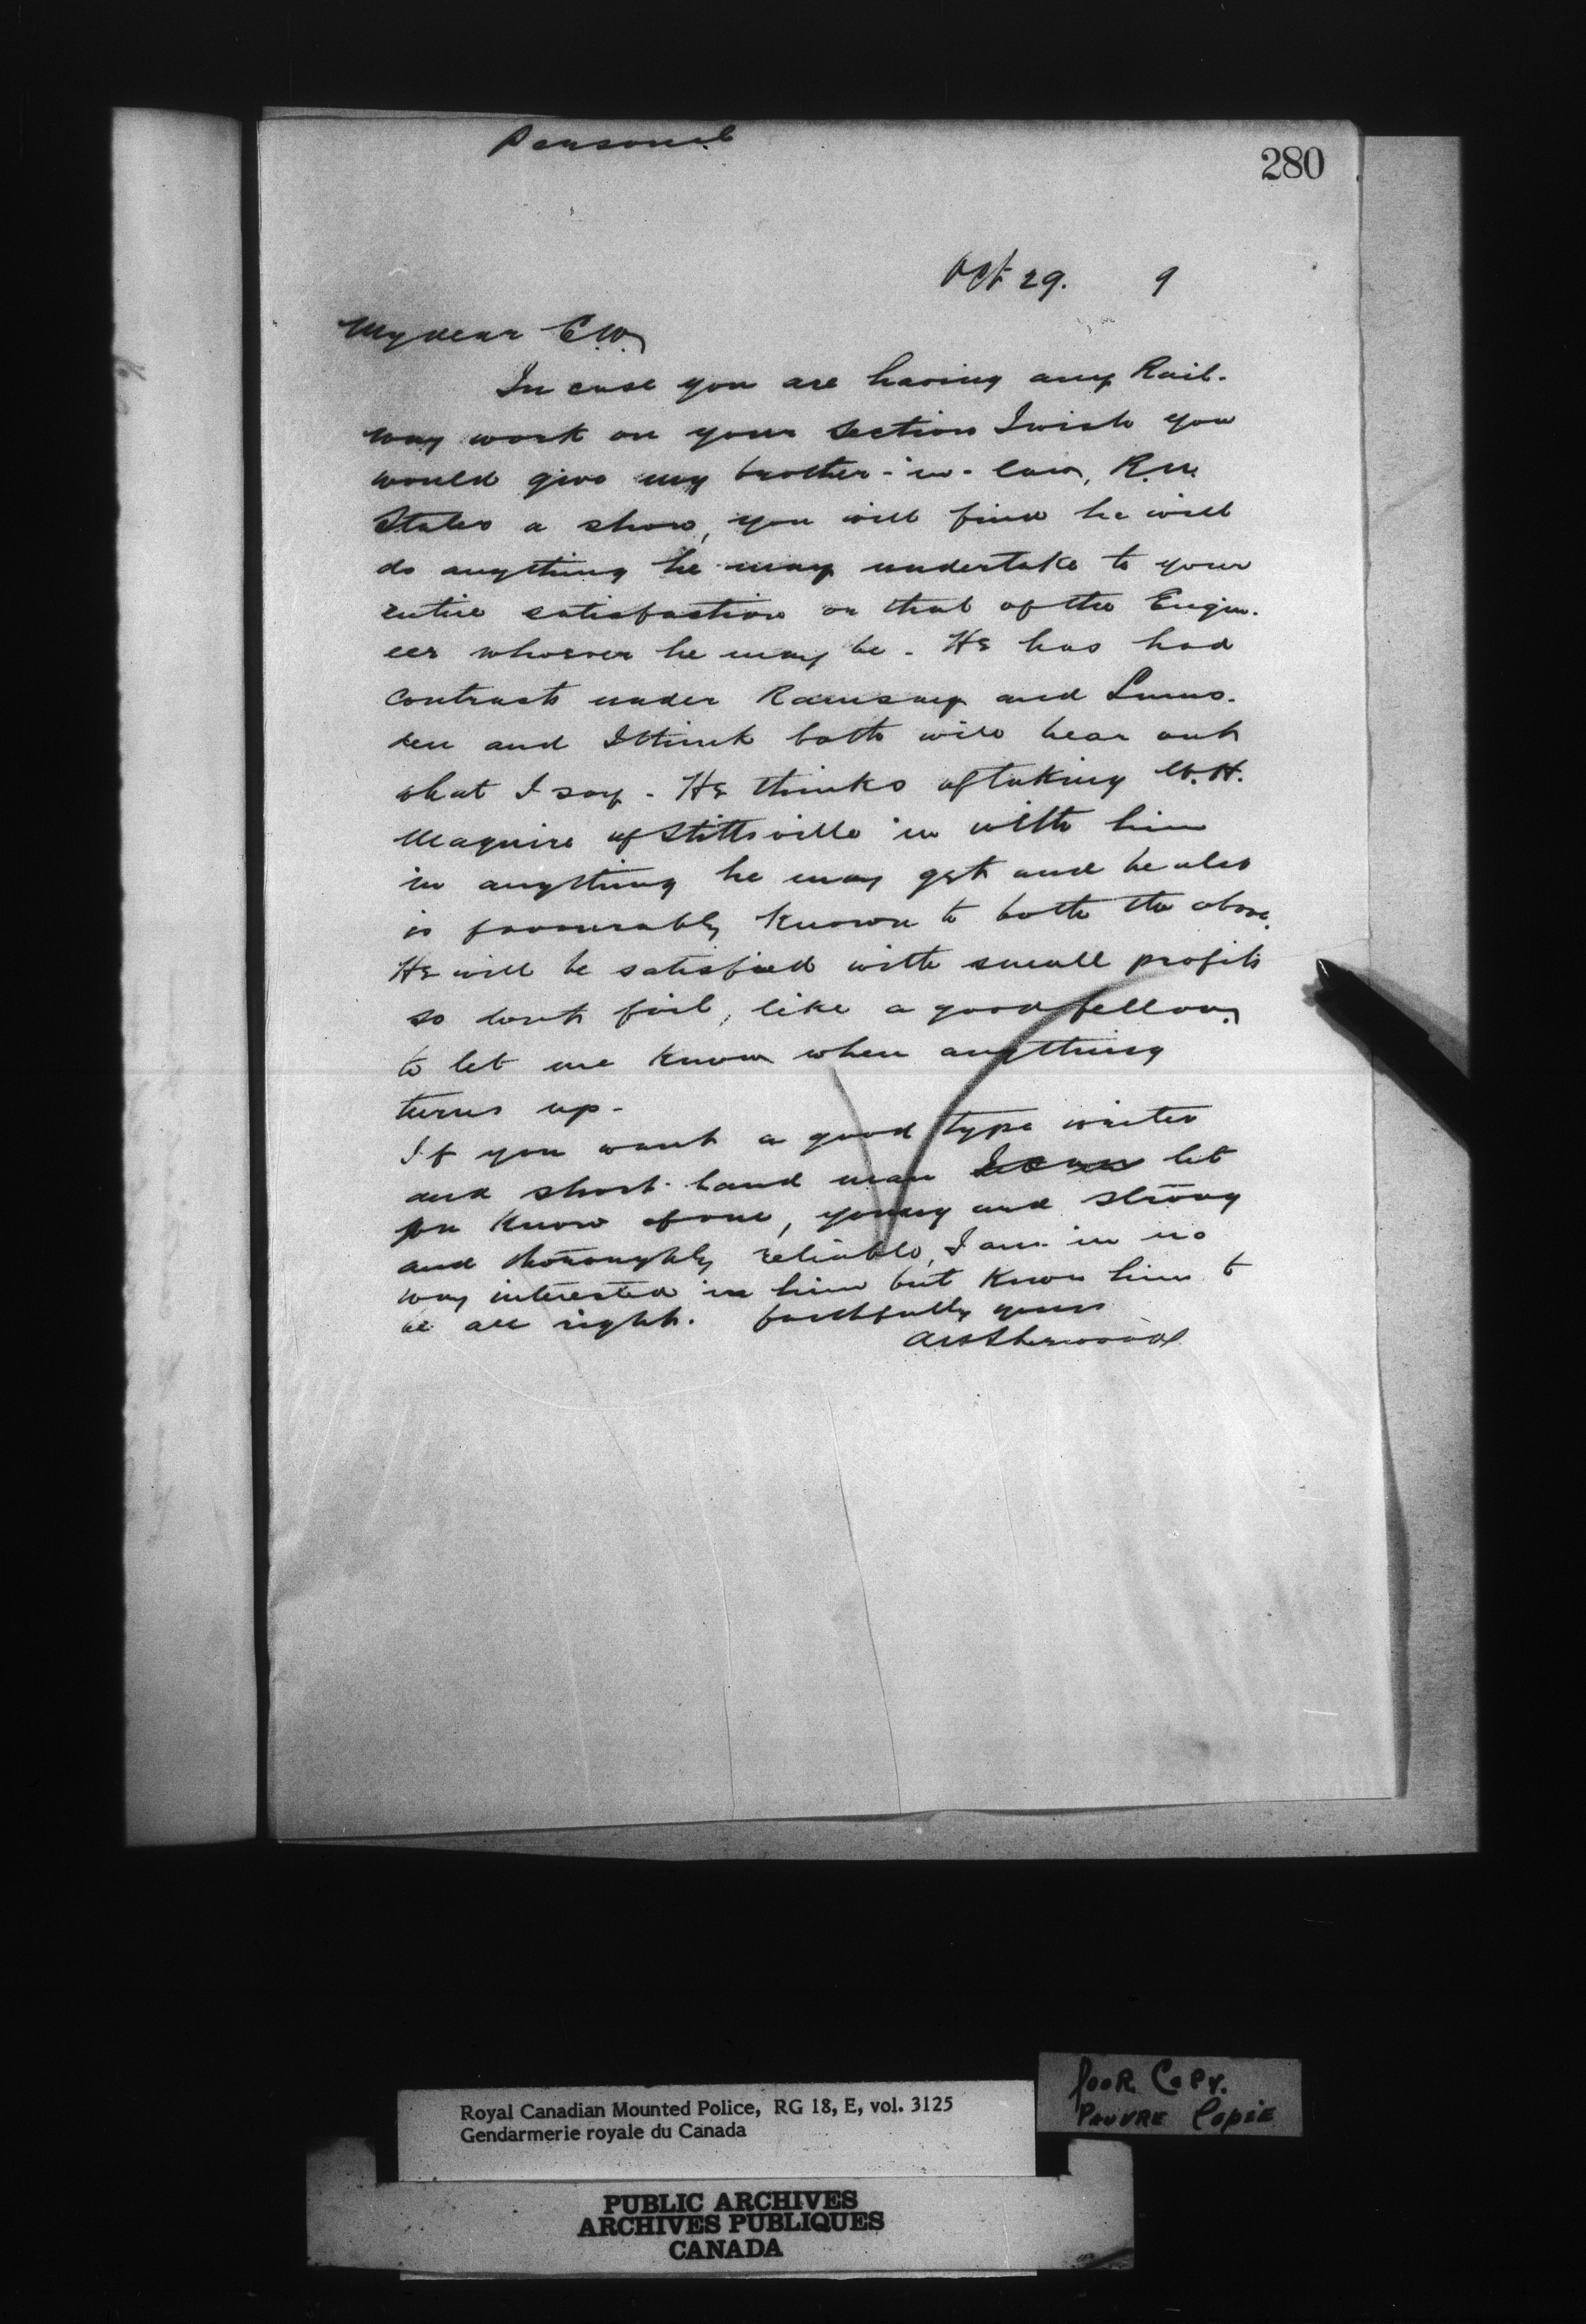 Personal
280
Oct 29. 9
My dear C.W.
In case you are having any Rail-
way work on your section I wish you
would give my brother-in-law, R.W.
Stales a show, you will find he will
do anything he may undertake to your
entire satisfaction or that of the Engin-
eer whoever he may be. He has had
contracts under Ramsay and Lums-
den and I think both will bear out
what I say. He thinks of taking W.H.
Maguire of Stittsville in with him
in anything he may get and he also
is favourably known to both the above.
He will be satisfied with small profits
so dont fail, like a good fellow,
to let me know when anything
turns up.
If you want a good type writer
and short-hand man I can let
you know of one, young and strong
and thoroughly reliable, I am in no
way interested in him but know him to
be all right. faithfully yours
AP Sherwood
Royal Canadian Mounted Police, RG 18, E, vol. 3125
Gendarmerie royale du Canada
Poor Copy.
Pauvre Copie
PUBLIC ARCHIVES
ARCHIVES PUBLIQUES
CANADA